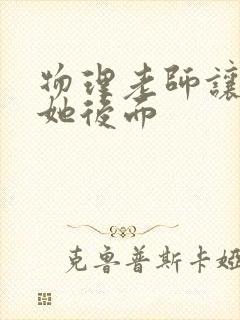 物理老師讓
她後而
克魯普斯卡婭